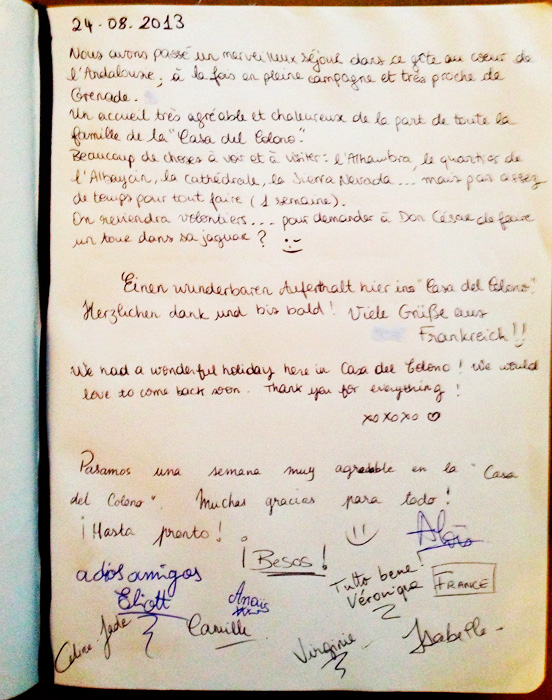 24-08.2013
Nous avons passé un merveilleux séjour dans ce gîte au cœur de
l'Andalousie, à la fois en pleine campagne et très proche de
Grenade.
Un accueil très agréable et chaleureux de la part de toute la
famille de la "Casa del Colono".
Beaucoup de choses à voir et à visiter: l'Alhambra, le quartier de
l'Albaycin, la cathédrale, la Sierra Nevada... mais pas assez
de temps pour tout faire (1 semaine).
On reviendra volontiers... pour demander à Don César de faire
un tour dans sa jaguar ?
Einen wunderbaren Auferthalt hier ins "Casa del Colono".
Herzlichen dank und bis bald! Viele Grüße aus
Frankreich!!
We had a wonderful holiday here in Casa del Colono! We would
love to come back soon. Thank you for everything!
xoxoxo ♡
Pasamos una semana muy agradable en la "Casa
del Colono". Muchas gracias para todo!
¡Hasta pronto!
¡Besos!
adios amigos
Eliott
Anaïs
Tutto bene!
Véronique
FRANCE
Celine. Jade
Camille
Virginie
Isabelle